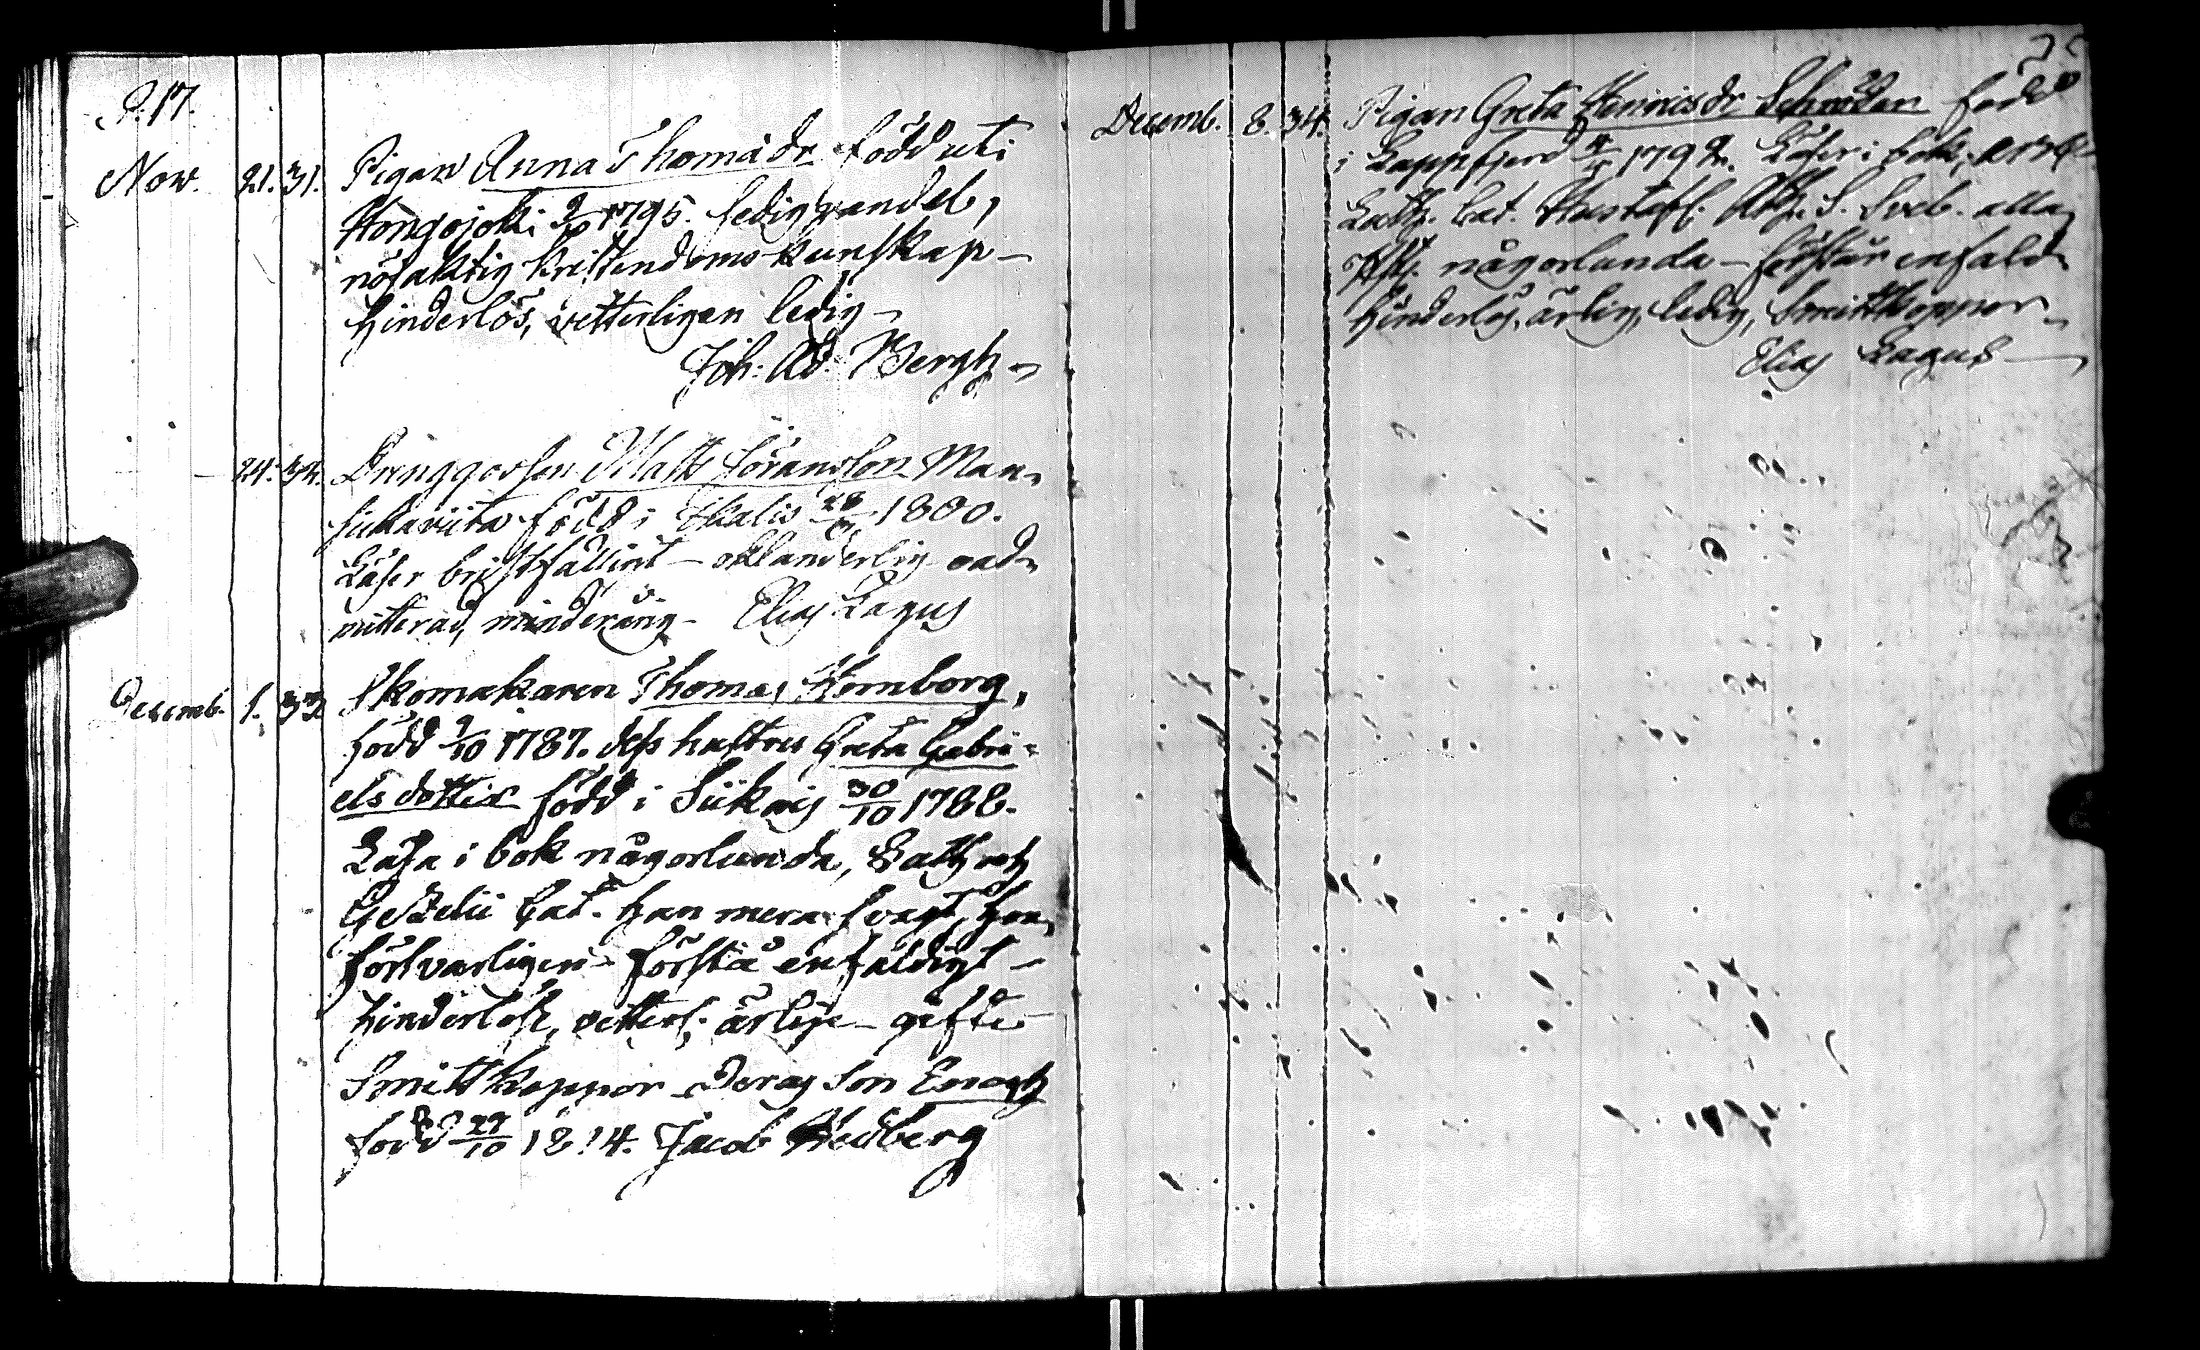 P. 17.
Nov. 21. 31. Pigan Anna Thomädr född uti
Hongojoki 9/10 1795. sedig vandel,
nöjaktig kristendoms kunskap –
hinderlös, vetterligen ledig –
Joh: Ad: Bergh –
– 24. 32. Drenggossen Matts Göransson Man-
född i Ikalis 28 1800.
Läser bristfälligt – oklanderlig oad-
mitterad, minderårig – Elias Lagus
Decemb. 1. 33. Skomakaren Thomas Hornborg,
född 9/10 1787. dess hustru Greta Gabri-
elsdotter född i Siikais 30/10 1788.
Läsa i bok någorlunda, Luth och
Gezelii Cat. han mera svagt, hon
försvarligen – förstå enfäldigt –
hinderlöse, vetterl. ärlige – gifte
Smittkoppor – Deras Son Enoch
född 29/10 1814. Jacob Hedberg
Decemb. 8. 34. Pigan Greta Henricsdr född
i Lappfjerd 1792. Läser i bok,
Luth. Cat. Hustafl. Ath. S. Sveb. alla
någorlunda – förstår enfald.
hinderlös, ärlig, ledig, Smittkoppor –
Elias Lagus –